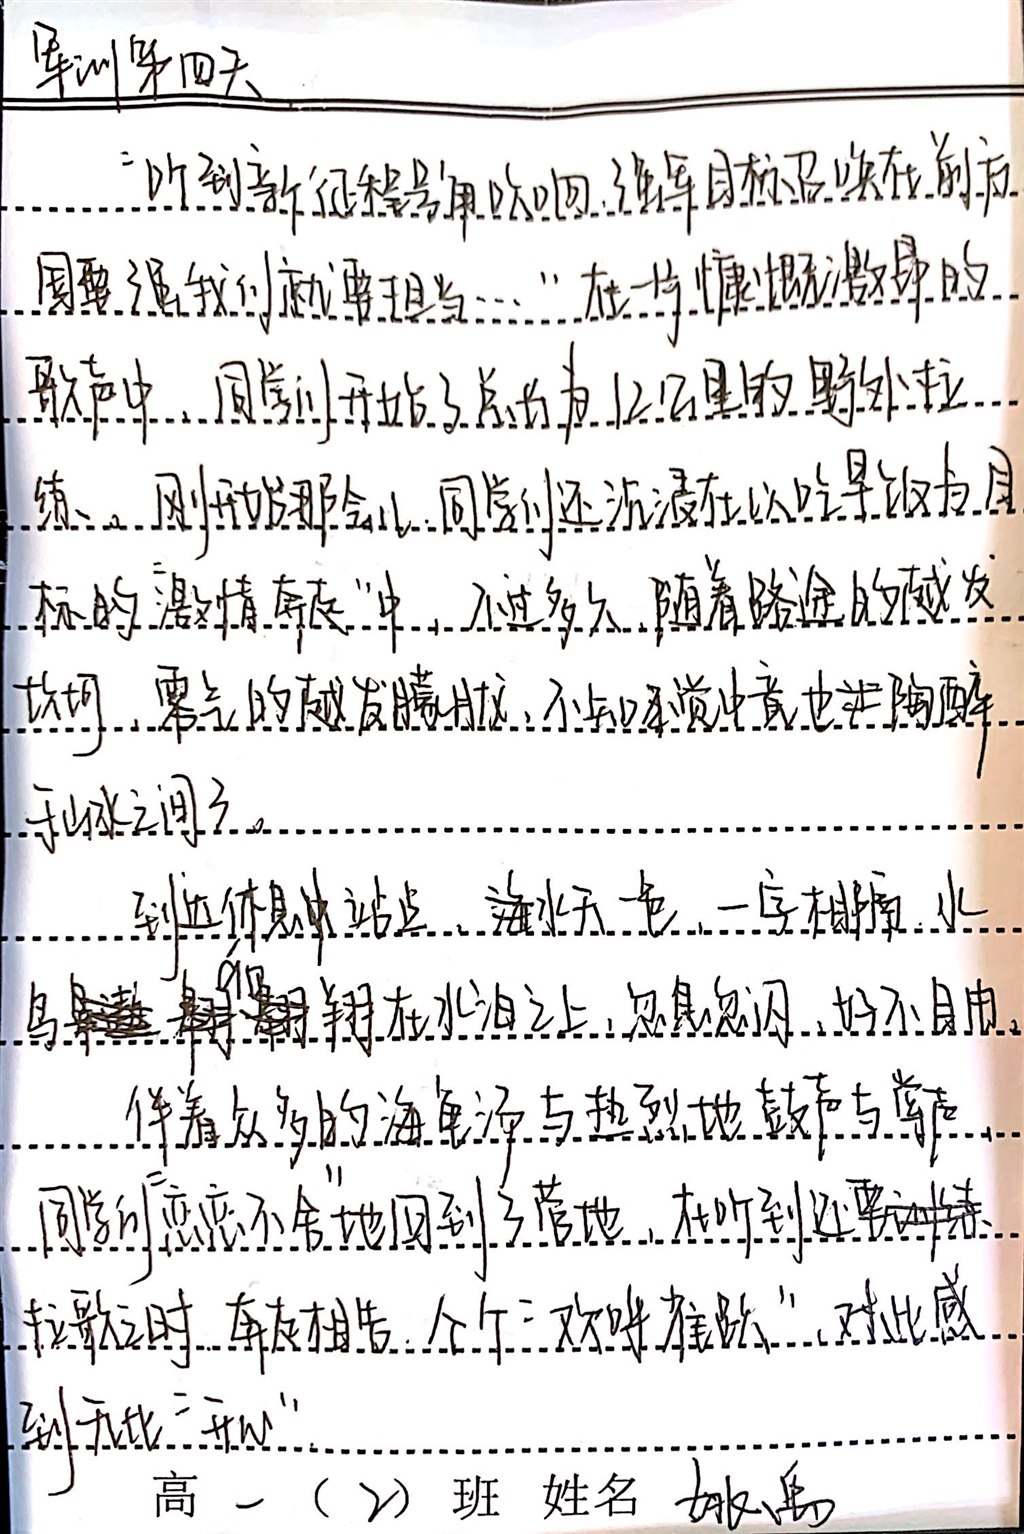 军训第四天
“听到新征程号角吹响，强军目标召唤在前方
国要强我们就要担当……”在一片慷慨激昂的
歌声中，同学们开始了总长为12公里的野外拉
练。刚开始那会儿，同学们还沉浸在以吃早饭为目
标的“激情奔赴”中，不过多久，随着路途的越发
坎坷，雾气的越发朦胧，不知不觉中竟也陶醉
于山水之间了。
到达休息中站点，海水天一色，一字相隔，水
鸟翱翔在水泊之上，忽隐忽闪，好不自由。
伴着众多的海鱼泽与热烈地鼓声与掌声，
同学们“恋恋不舍”地回到了营地，在听到还要
拉歌之时，奔走相告，个个“欢呼雀跃”，对此感
到无比“开心”
高一（2）班 姓名 姚禹